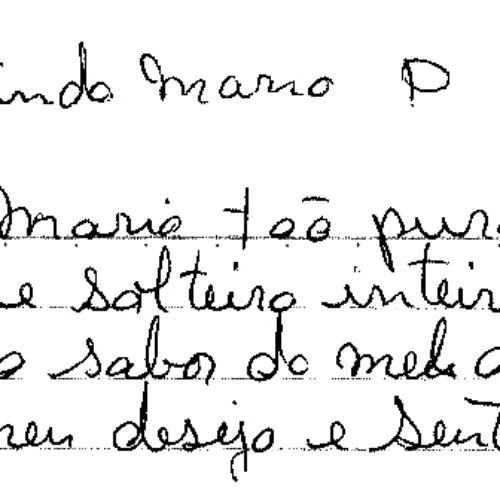 indo Mario P
Mario tão pur
e solteiro inteir
o sabor do med
meu desejo e sent